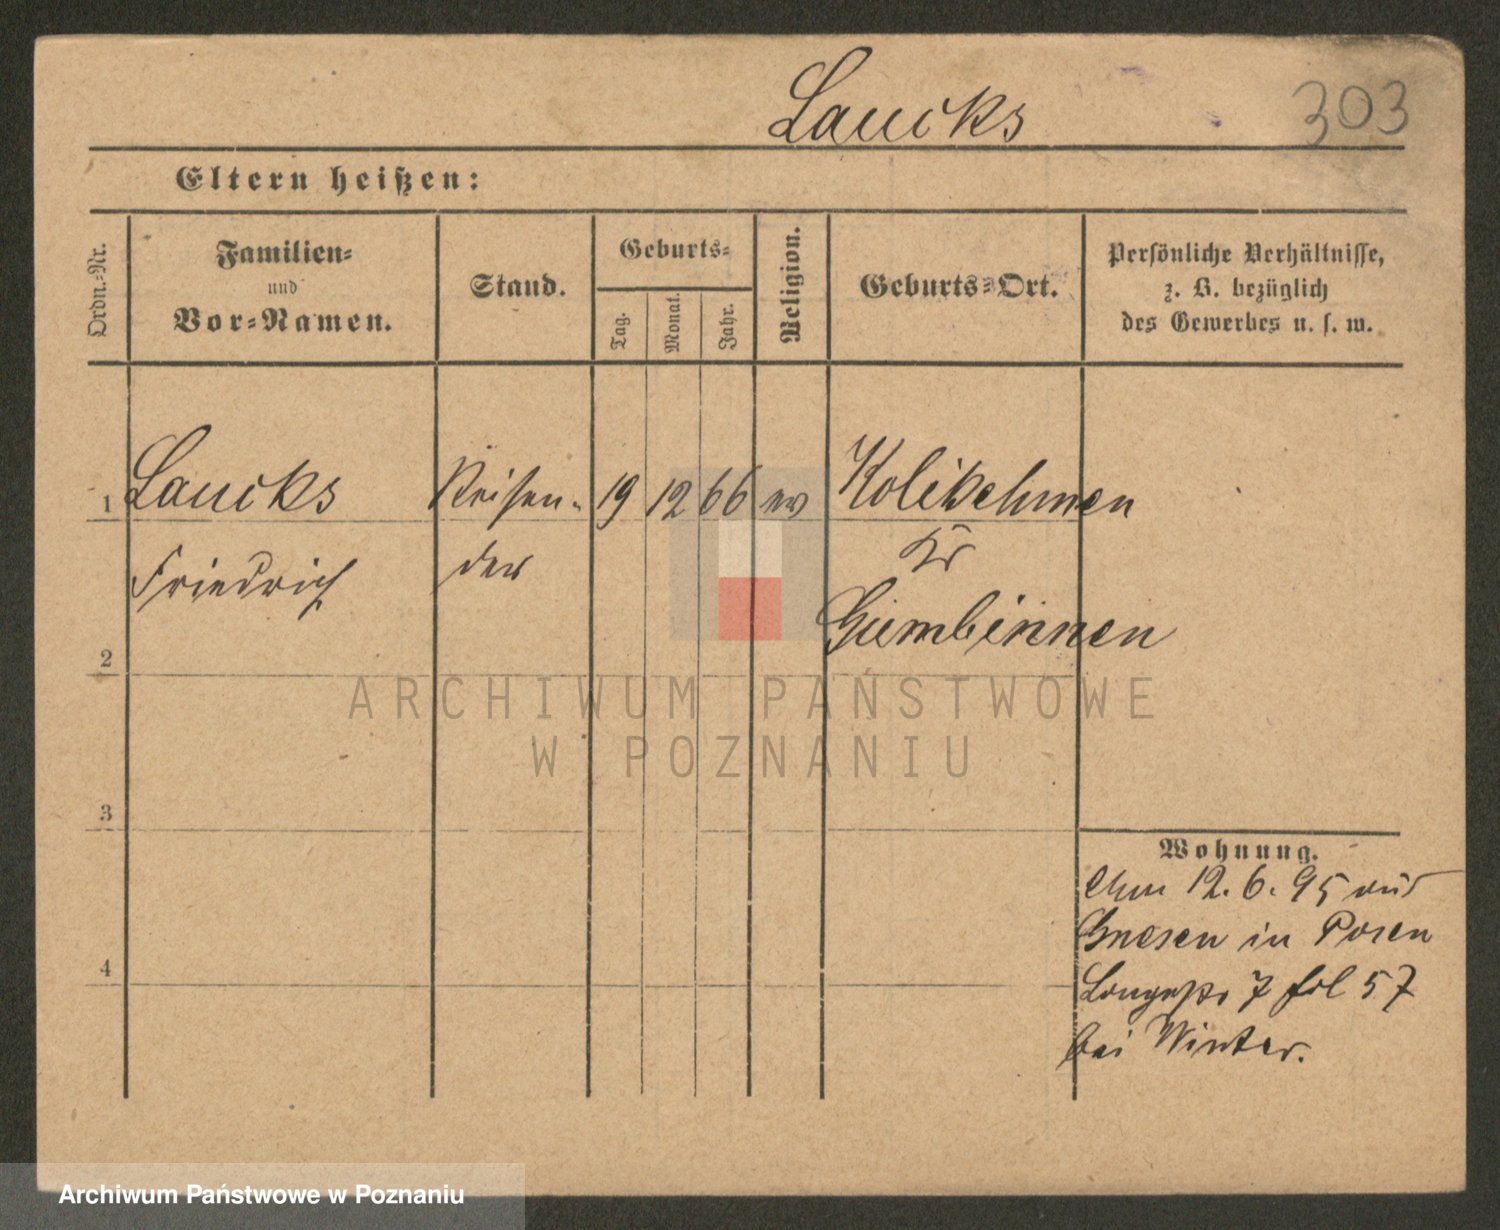 Laucks
303
Eltern heißen:
Ordn.-Nr.
Familien-
und
Vor-Namen.
Stand.
Geburts-
Tag.
Monat.
Jahr.
Religion.
Geburts-Ort.
Persönliche Verhältnisse,
z. B. bezüglich
des Gewerbes u. s. w.
1 Laucks Reisen- 19 12 66 ev Kolikehmen
Friedrich der Kr
Gumbinnen
2
3
4
Wohnung.
12.6.95 aus
Gnesen in Posen
7 fol 57
bei Winter.
ARCHIWUM PAŃSTWOWE
W POZNANIU
Archiwum Państwowe w Poznaniu